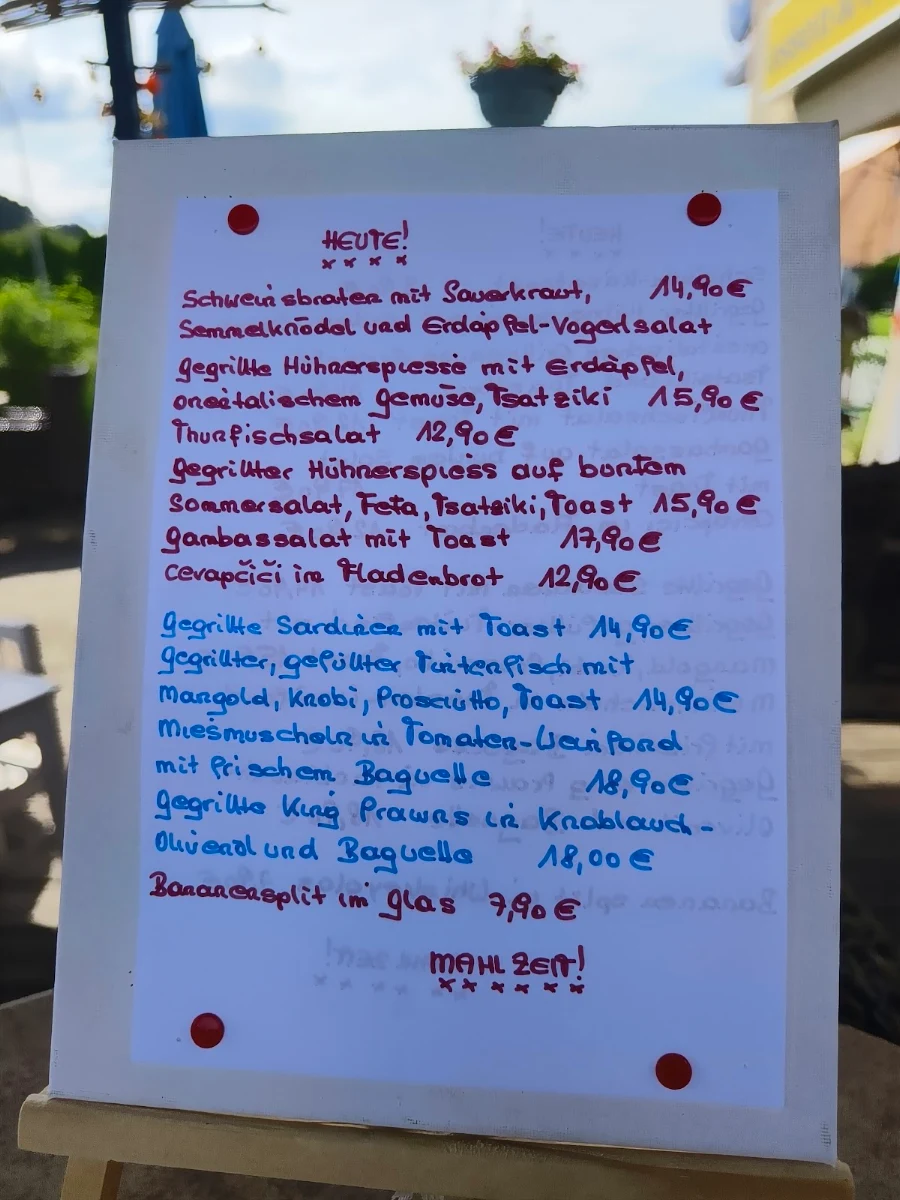 HEUTE!
Schweinsbraten mit Sauerkraut, 14,90€
Semmelknödel und Erdäpfel-Vogerlsalat
gegrillte Hühnerspiesse mit Erdäpfel,
orietalischem Gemüse, Tsatziki 15,90€
Thunfischsalat 12,90€
gegrillter Hühnerspiess auf buntem
Sommersalat, Feta, Tsatziki, Toast 15,90€
Gambassalat mit Toast 17,90€
Cevapčiči im Fladenbrot 12,90€
Gegrillte Sardinen mit Toast 14,90€
gegrillter, gefüllter Tintenfisch mit
Mangold, Knobi, Prosciutto, Toast 14,90€
Miesmuscheln in Tomaten-Weinfond
mit frischem Baguette 18,90€
gegrillte King Prawns in Knoblauch-
Olivenöl und Baguette 18,00€
Bananensplit im Glas 7,90€
MAHLZEIT!